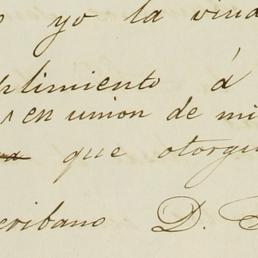 yo la viud
plimiento á
en union de mi
que otorgu
cribano D.